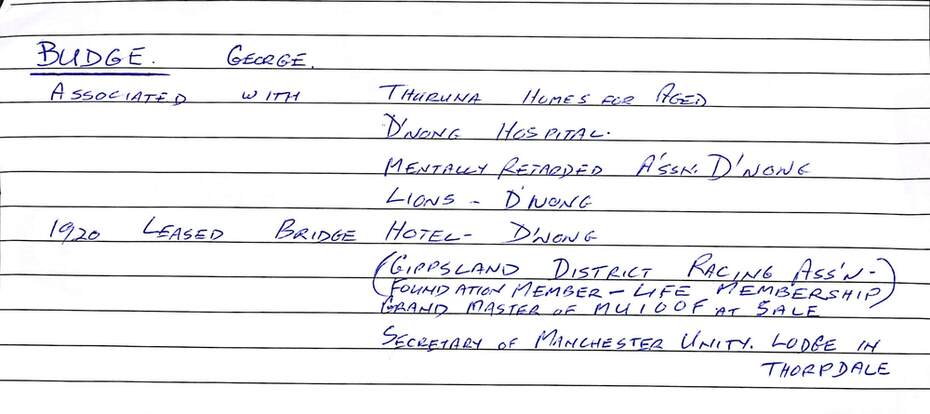 BUDGE. GEORGE.
ASSOCIATED WITH THURUNA HOMES FOR AGED
D'NONG HOSPITAL.
MENTALLY RETARDED A'SSN. D'NONG
LIONS - D'NONG
1920 LEASED BRIDGE HOTEL- D'NONG
(GIPPSLAND DISTRICT RACING ASS'N-)
(FOUNDATION MEMBER - LIFE MEMBERSHIP)
GRAND MASTER OF MUIOOF AT SALE
SECRETARY OF MANCHESTER UNITY. LODGE IN
THORPDALE